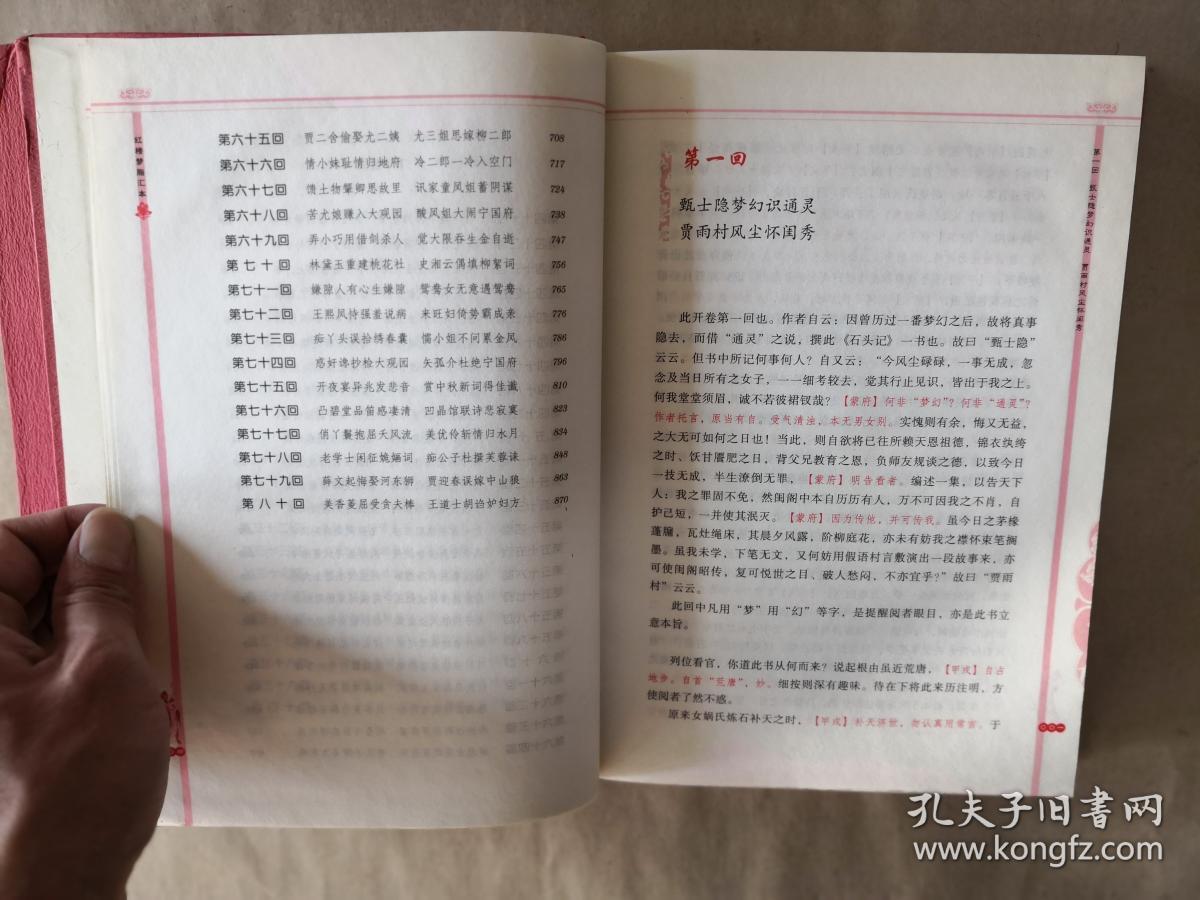 红楼梦脂汇本
第六十五回 贾二舍偷娶尤二姨 尤三姐思嫁柳二郎 708
第六十六回 情小妹耻情归地府 冷二郎一冷入空门 717
第六十七回 馈土物颦卿思故里 讯家童凤姐蓄阴谋 724
第六十八回 苦尤娘赚入大观园 酸凤姐大闹宁国府 738
第六十九回 弄小巧用借剑杀人 觉大限吞生金自逝 747
第七十回 林黛玉重建桃花社 史湘云偶填柳絮词 756
第七十一回 嫌隙人有心生嫌隙 鸳鸯女无意遇鸳鸯 765
第七十二回 王熙凤恃强羞说病 来旺妇倚势霸成亲 776
第七十三回 痴丫头误拾绣春囊 懦小姐不问累金凤 786
第七十四回 惑奸谗抄检大观园 矢孤介杜绝宁国府 796
第七十五回 开夜宴异兆发悲音 赏中秋新词得佳谶 810
第七十六回 凸碧堂品笛感凄清 凹晶馆联诗悲寂寞 823
第七十七回 俏丫鬟抱屈夭风流 美优伶斩情归水月 834
第七十八回 老学士闲征姽婳词 痴公子杜撰芙蓉诔 848
第七十九回 薛文起悔娶河东狮 贾迎春误嫁中山狼 863
第八十回 美香菱屈受贪夫棒 王道士胡诌妒妇方 870
第一回 甄士隐梦幻识通灵 贾雨村风尘怀闺秀
第一回
甄士隐梦幻识通灵
贾雨村风尘怀闺秀
此开卷第一回也。作者自云：因曾历过一番梦幻之后，故将真事
隐去，而借“通灵”之说，撰此《石头记》一书也。故曰“甄士隐”
云云。但书中所记何事何人？自又云：“今风尘碌碌，一事无成，忽
念及当日所有之女子，一一细考较去，觉其行止见识，皆出于我之上。
何我堂堂须眉，诚不若彼裙钗哉？【蒙府】何非“梦幻”？何非“通灵”？
作者托言，原当有自。受气清浊，本无男女别。实愧则有余，悔又无益，
之大无可如何之日也！当此，则自欲将已往所赖天恩祖德，锦衣纨绔
之时、饫甘餍肥之日，背父兄教育之恩，负师友规谈之德，以致今日
一技无成，半生潦倒无罪，【蒙府】明告看者。编述一集，以告天下
人：我之罪固不免，然闺阁中本自历历有人，万不可因我之不肖，自
护己短，一并使其泯灭。【蒙府】因为传他，并可传我。虽今日之茅椽
蓬牖，瓦灶绳床，其晨夕风露，阶柳庭花，亦未有妨我之襟怀束笔搁
墨。虽我未学，下笔无文，又何妨用假语村言敷演出一段故事来，亦
可使闺阁昭传，复可悦世之目、破人愁闷、不亦宜乎？”故曰“贾雨
村”云云。
此回中凡用“梦”用“幻”等字，是提醒阅者眼目，亦是此书立
意本旨。
列位看官，你道此书从何而来？说起根由虽近荒唐，【甲戌】自占
地步。自首“荒唐”，妙。细按则深有趣味。待在下将此来历注明，方
使阅者了然不惑。
原来女娲氏炼石补天之时，【甲戌】补天济世，勿认真用常言。于
〇〇一
孔夫子旧书网
www.kongfz.com